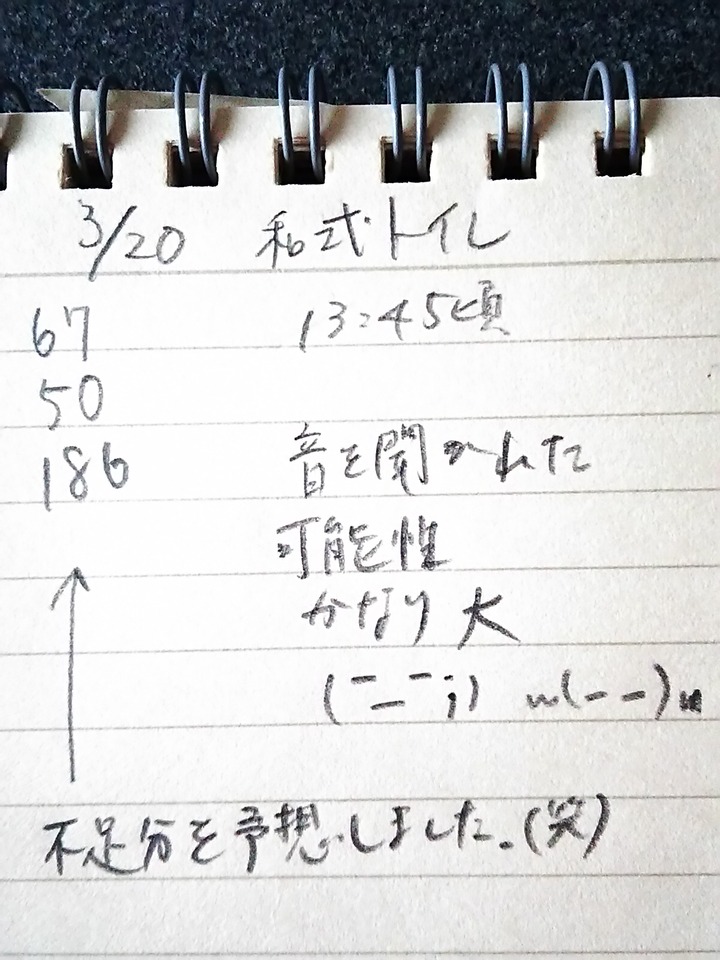 3/20 和式トイレ
67 13:45頃
50
186 音を聞かれた
可能性
かなり大
(ー_ー;) m(- -)m
不足分を予想しました。(笑)